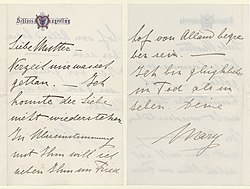 Schloss Mayerling
Liebe Mutter –
Verzeiht mir was ich
gethan. – Ich
konnte der Liebe
nicht wiederstehen.
In Übereinstimmung
mit Ihm will ich
neben Ihm im Fried
hof von Alland begra
ben sein –
Ich bin glücklicher
im Tod als im
Leben. Deine
Mary